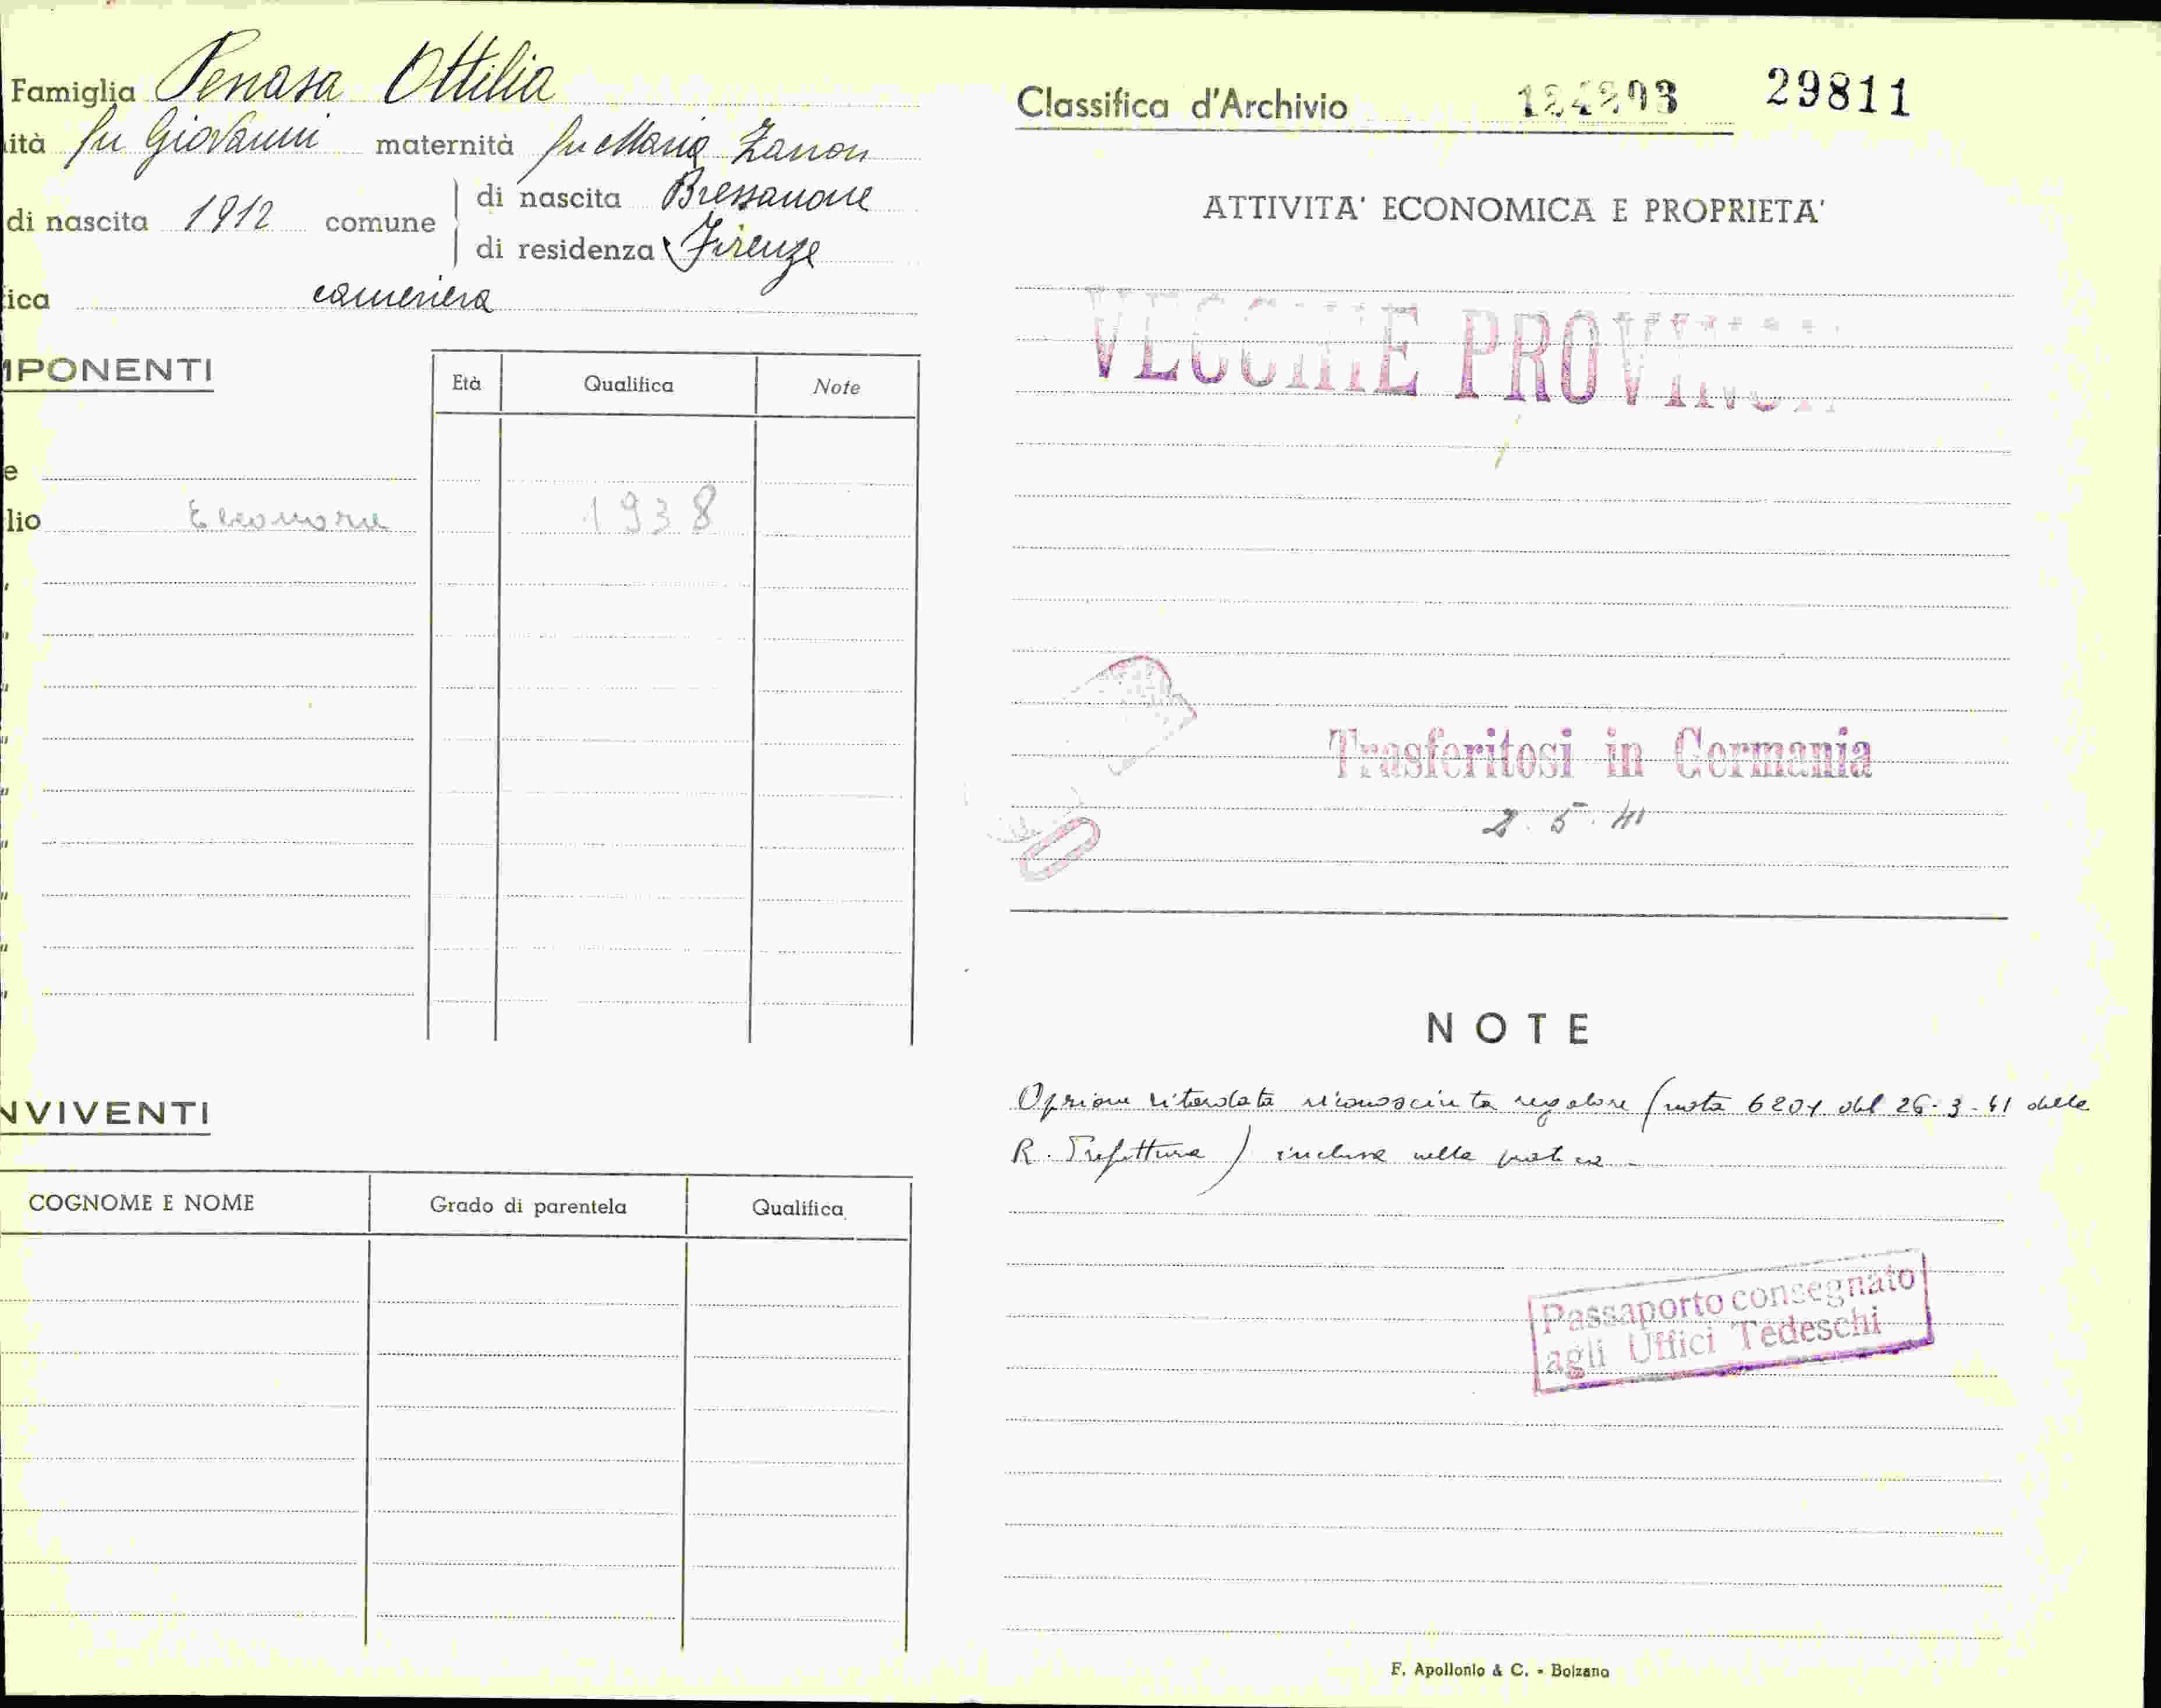 Famiglia Penasa Ottilia
ità fu Giovanni maternità fu Maria Zanon
di nascita 1912 comune di nascita Bressanone
di residenza Firenze
ica cameriera
MPONENTI
Età Qualifica Note
e
lio Eleonora 1938
NVIVENTI
COGNOME E NOME Grado di parentela Qualifica
Classifica d'Archivio 29811
ATTIVITA' ECONOMICA E PROPRIETA'
VECCHIE PROVINCIE
Trasferitosi in Germania
2.5.41
NOTE
Opzione ritardata riconosciuta regolare (nota 6201 del 26-3-41 della
R. Prefettura) inclusa nella pratica -
Passaporto consegnato
agli Uffici Tedeschi
F. Apollonio & C. - Bolzano